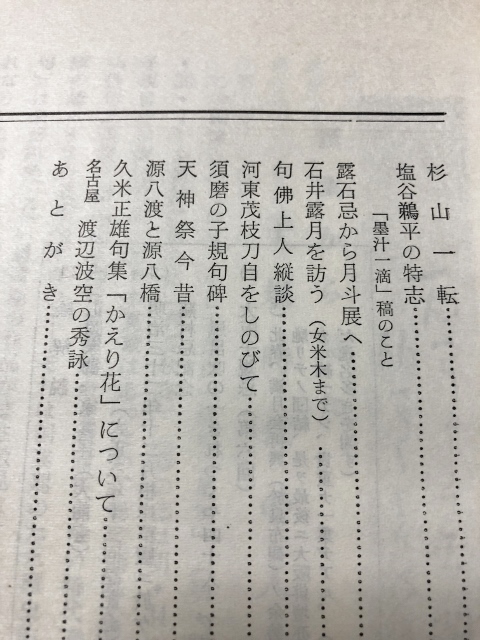 杉山一転
塩谷鵜平の特志
「墨汁一滴」稿のこと
露石忌から月斗展へ
石井露月を訪う（女米木まで）
句佛上人縦談
河東茂枝刀自をしのびて
須磨の子規句碑
天神祭今昔
源八渡と源八橋
久米正雄句集「かえり花」について
名古屋 渡辺波空の秀詠
あとがき